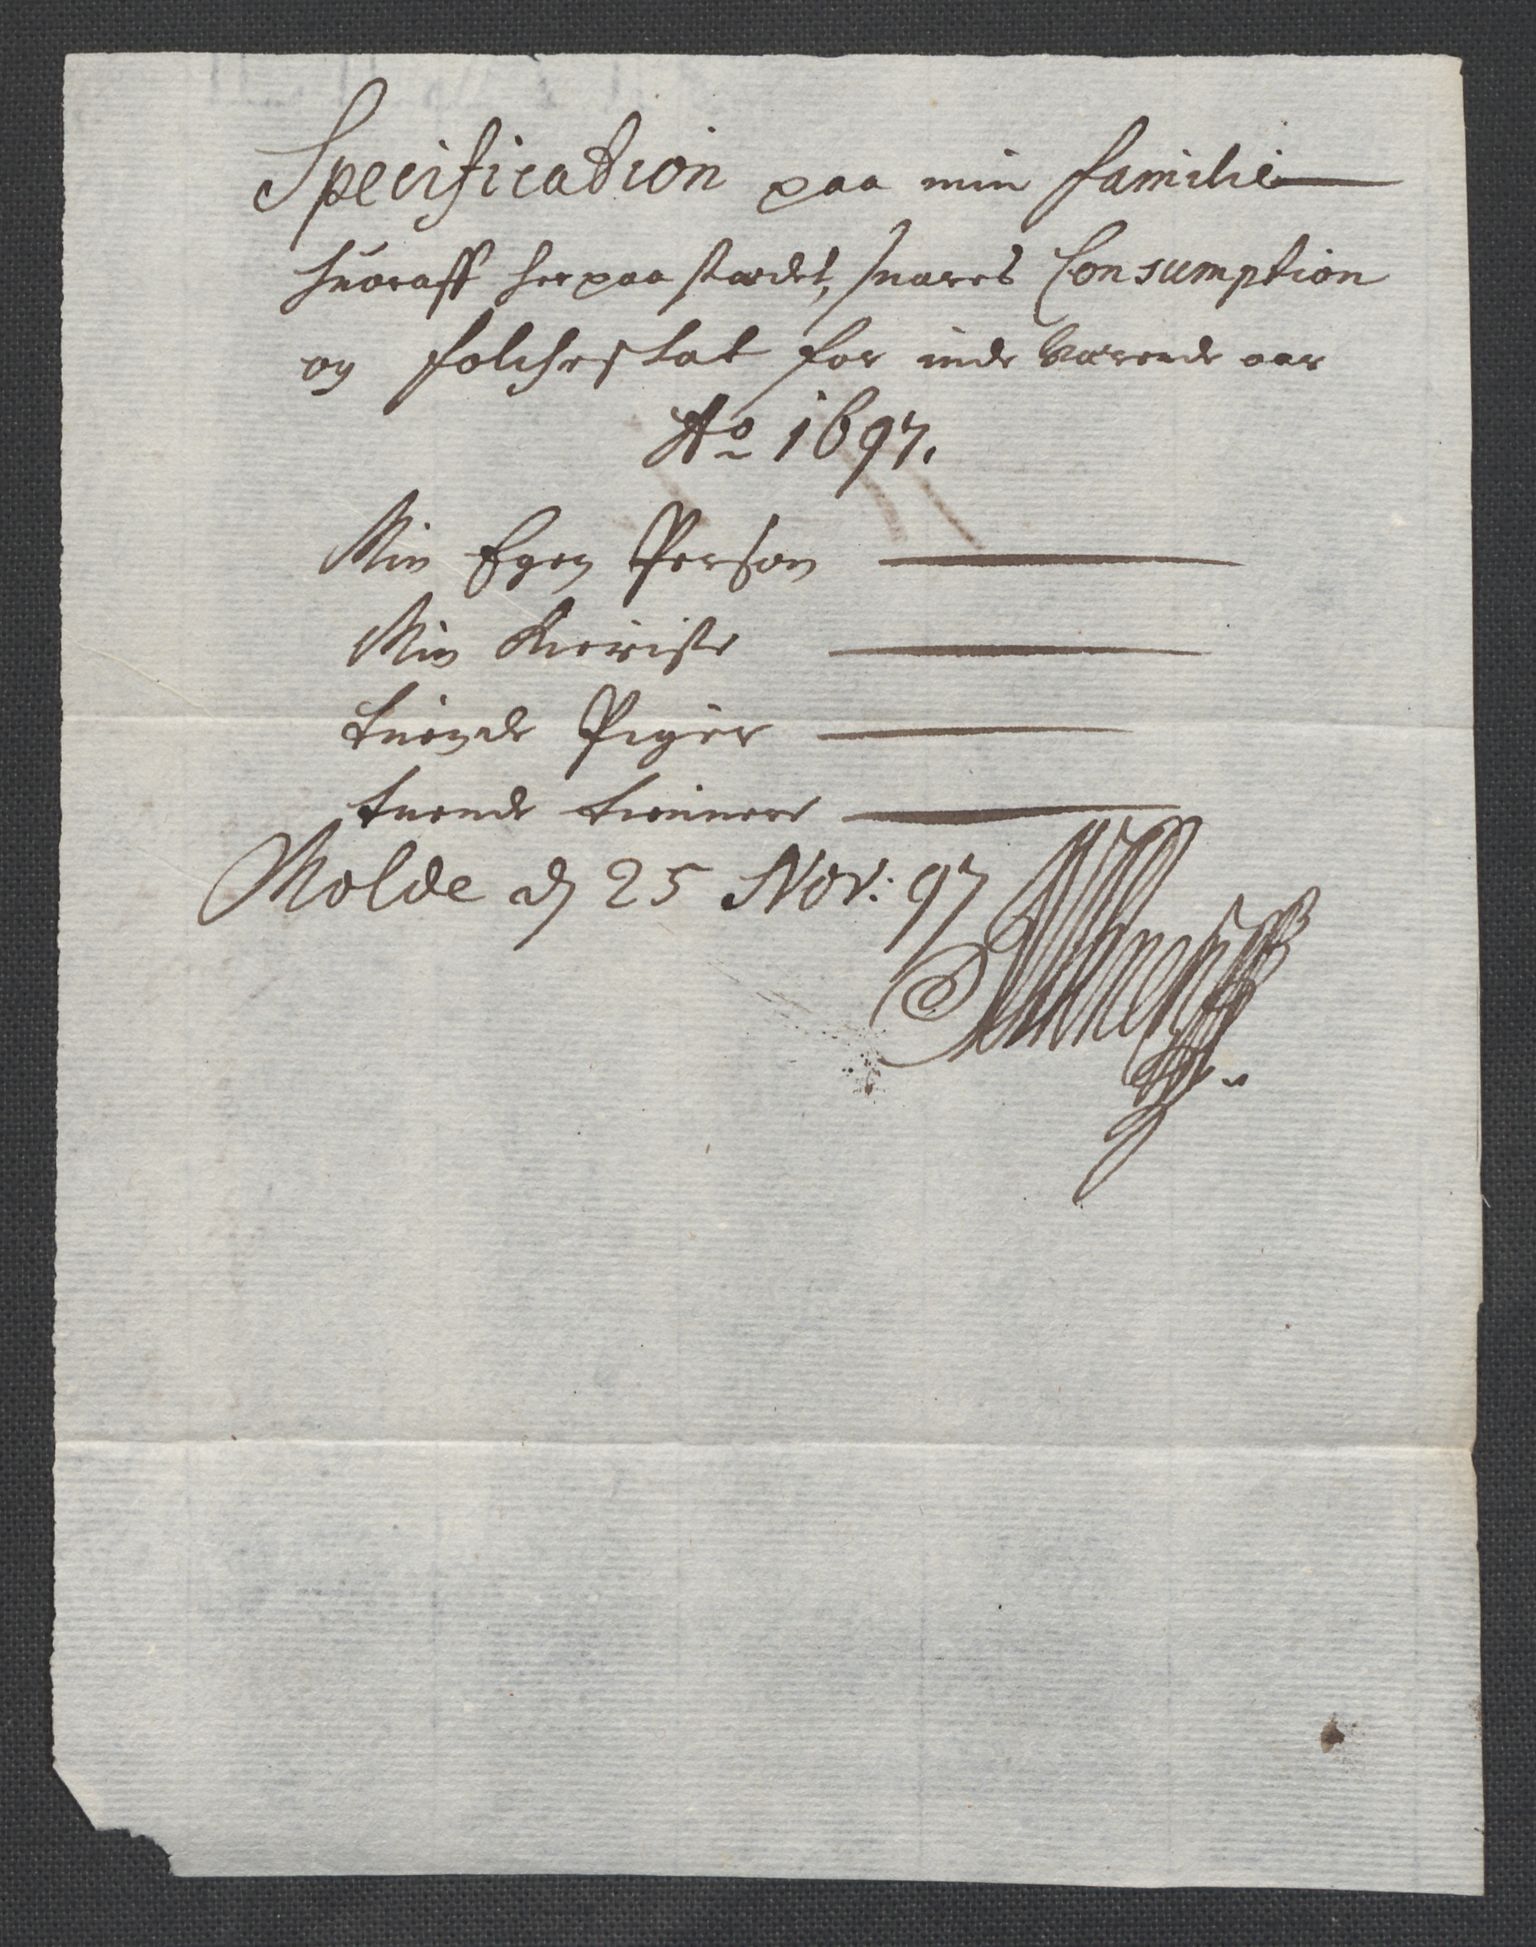 Specification paa min familie
huoraff her paa stædet, suares Consumption
og folcheskat for inde værende aar
Ao 1697.
Min Egen Person
Min Kieriste
tuende Piger
tuende tienere
Molde d 25 Nov: 97